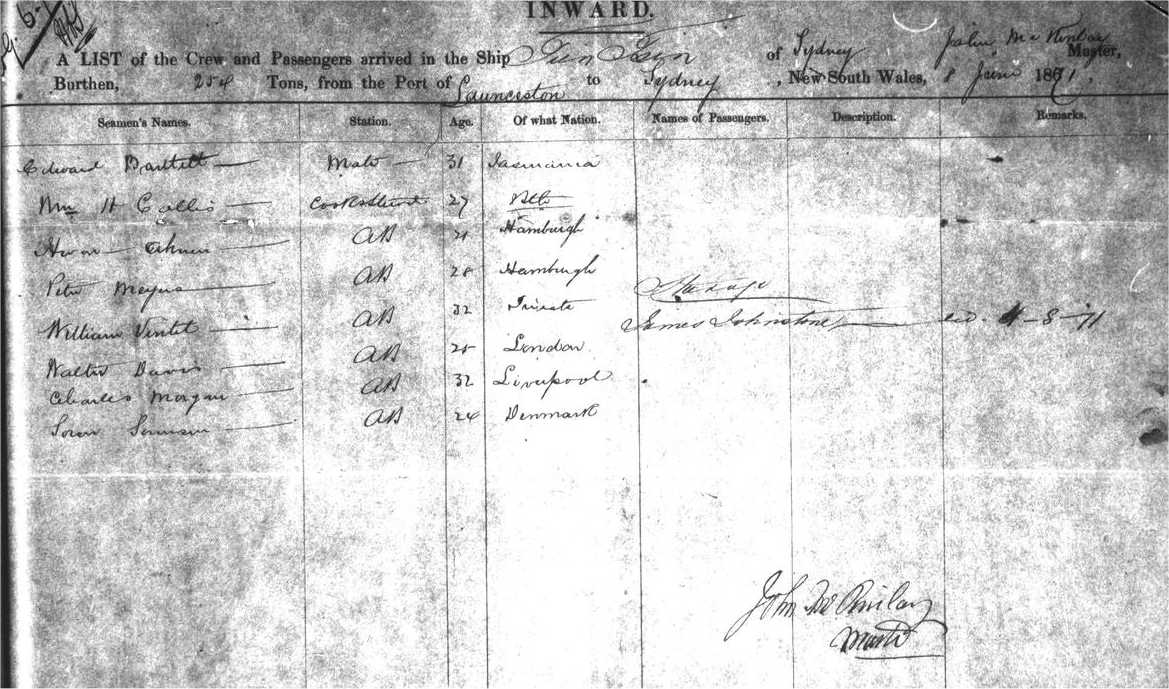 INWARD.
A LIST of the Crew and Passengers arrived in the Ship of Sydney John Mc Kinlay Master,
Burthen, 254 Tons, from the Port of Launceston to Sydney, New South Wales, 8 June 1871
Seamen's Names. Station. Age. Of what Nation. Names of Passengers. Description. Remarks.
Edward Bartlett Mate 31 Tasmania
Wm H Collis Cook & Steward 27
AB 21 Hamburgh
Peter AB 28 Hamburgh
Steerage
William AB 32 Trieste
James Johnstone 4-8-71
Walter Davis AB 25 London
Charles Morgan AB 32 Liverpool
Soren AB 24 Denmark
John Mc Kinlay
Master